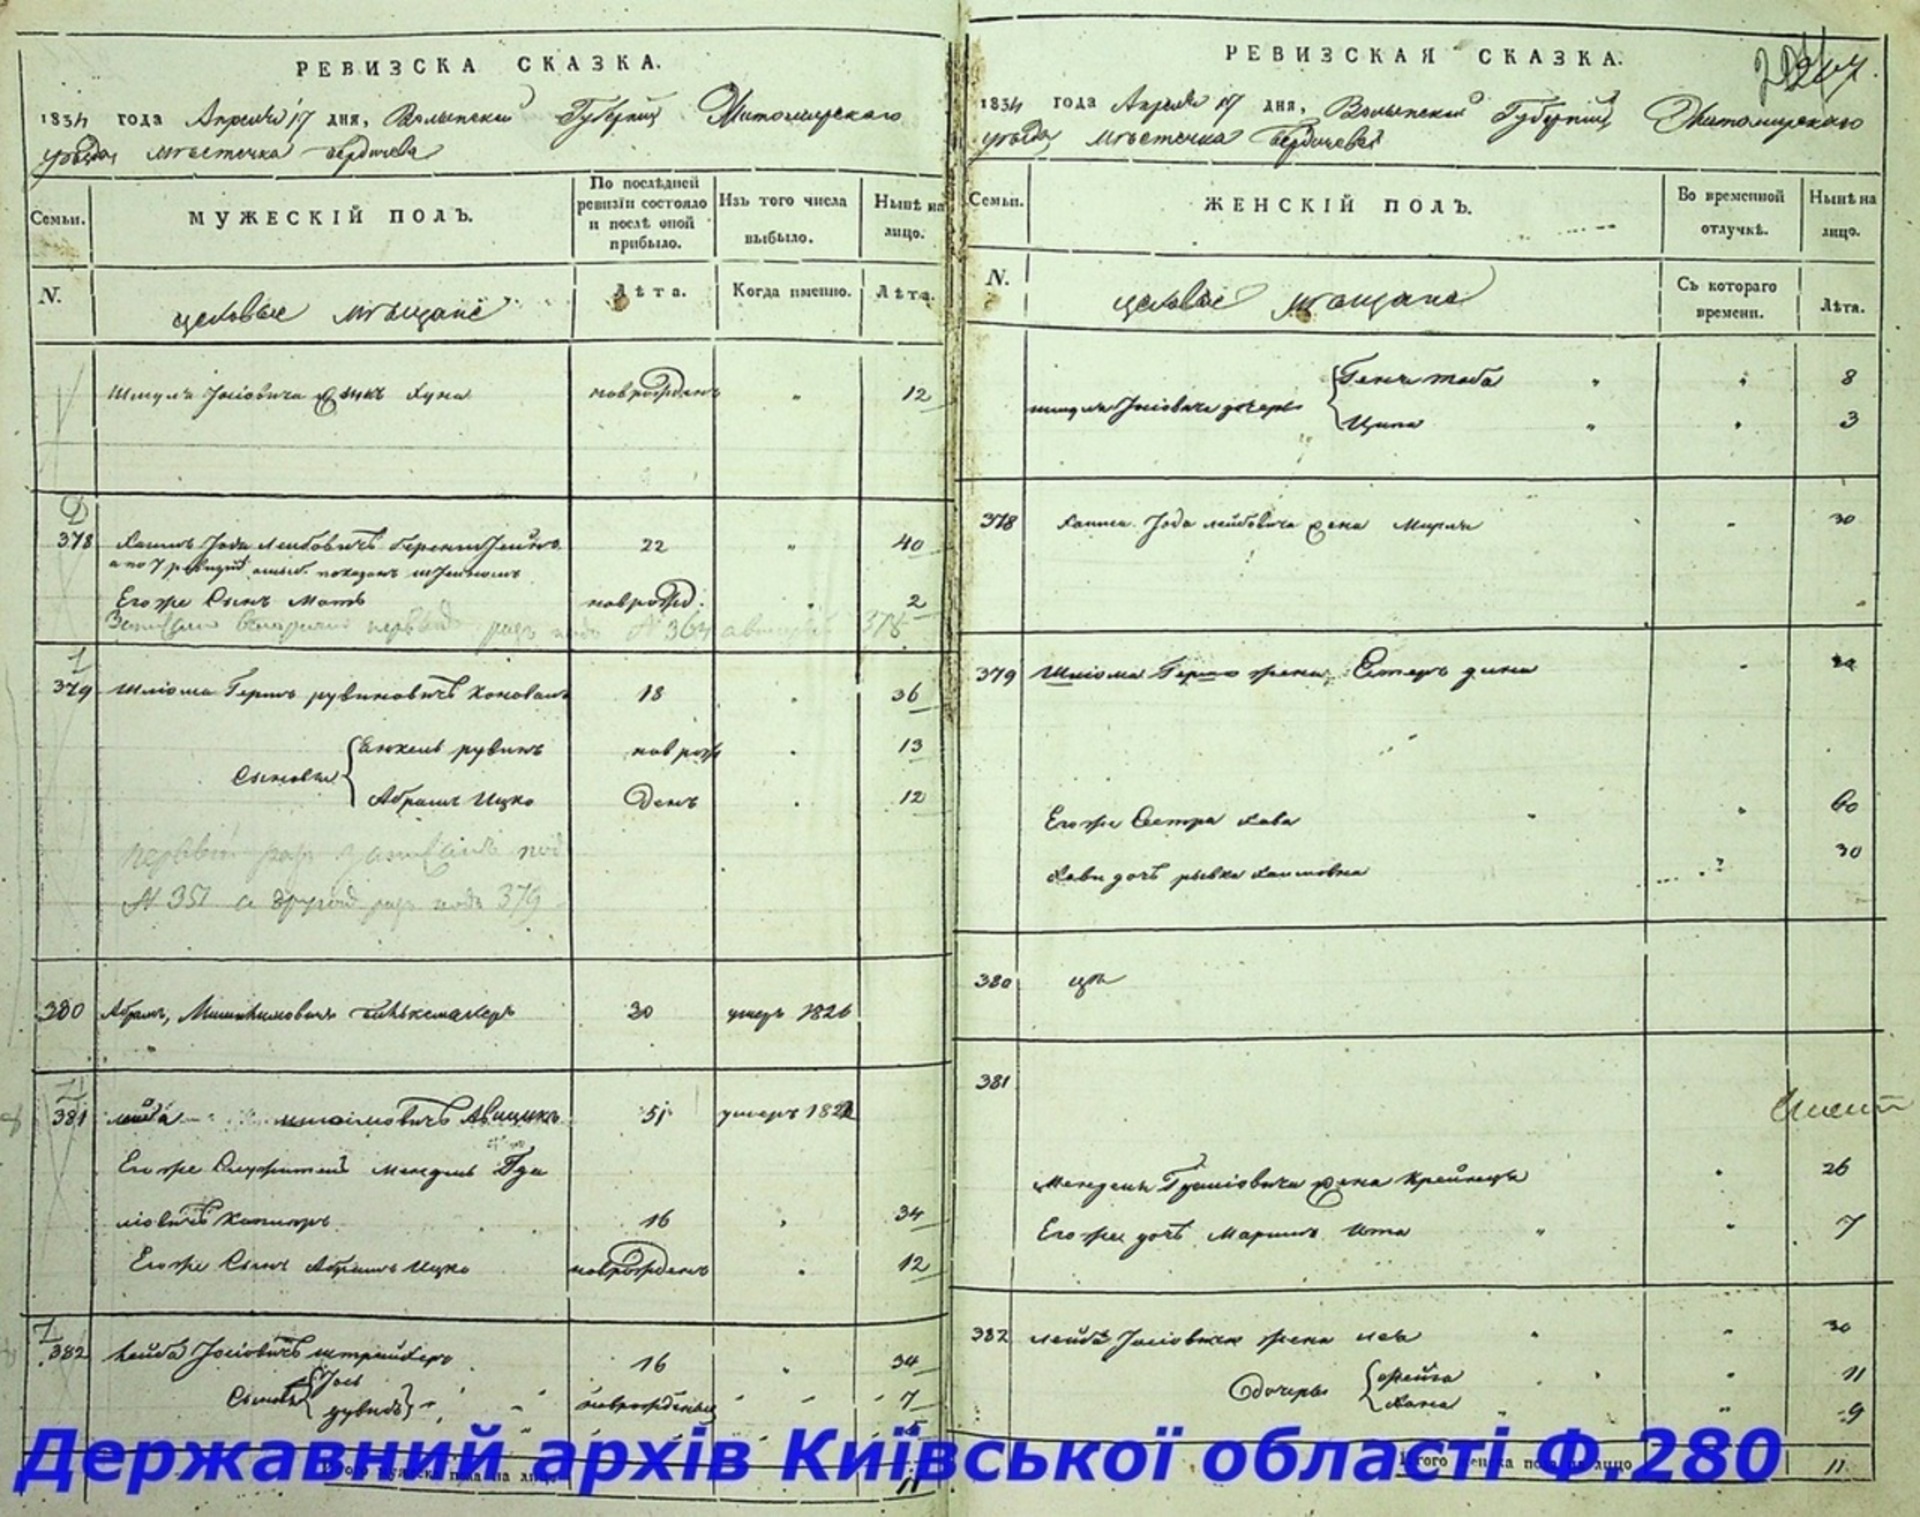 РЕВИЗСКА СКАЗКА.
1834 года Апреля 17 дня, Волынской Губернии Житомирского
уезда местечка Бердичева
Семьи.
МУЖЕСКІЙ ПОЛЪ.
По послѣдней ревизіи состояло и послѣ оной прибыло.
Изъ того числа выбыло.
Нынѣ на лицо.
N.
цеховые мещане
Лѣта.
Когда именно.
Лѣта.
Шмуля Іосіовича сынъ Хуна новорожденъ " 12
378 Хаимъ Іода Лейбовичъ 22 " 40
а по 7 ревизии показанъ
Его же Сынъ Мотъ новорожд. " 2
N 364 378
379 Шліома Гершъ рувиновичъ Коновалъ 18 " 36
Сыновья Янкель рувинъ новрож " 13
Абрамъ Ицко денъ " 12
первый разъ записанъ под
N 351 а другой разъ подъ 379
380 Абрамъ, 30 умеръ 1826
381 Лейба 51 умеръ
Его же Мендель Гда
ліовичъ 16 " 34
Его же Сынъ Абрамъ Ицко новорожденъ " 12
382 Лейба Іосіовичъ штрейхеръ 16 " 34
Сыновья Іось
дувидъ новорожденые " " " 7
5
Итого мужеска пола на лицо 11
РЕВИЗСКАЯ СКАЗКА.
1834 года Апреля 17 дня, Волынской Губернии Житомирского
уезда местечка Бердичева
Семьи.
ЖЕНСКІЙ ПОЛЪ.
Во временной отлучкѣ.
Нынѣ на лицо.
N.
цеховые мещане
Съ котораго времени.
Лѣта.
Шмуля Іосіовича дочери Генч тоба " " 8
Ципа " " 3
378 Хаима Іода лейбовича жена Мирля " 30
379 Шліома Гершо жена Естеръ дина "
Его же Сестра Хава " " 60
Хави дочь рывка Хаимовна 30
380
381
Мендель Гдаліовича жена Крейнцъ " 26
Его же дочь Маріимъ Ита " " 7
382 лейба Іосіовича жена лея " " 30
дочери фейга " " 11
Хана " " 9
Итого женска пола на лицо 11
Державний архів Київської області Ф.280